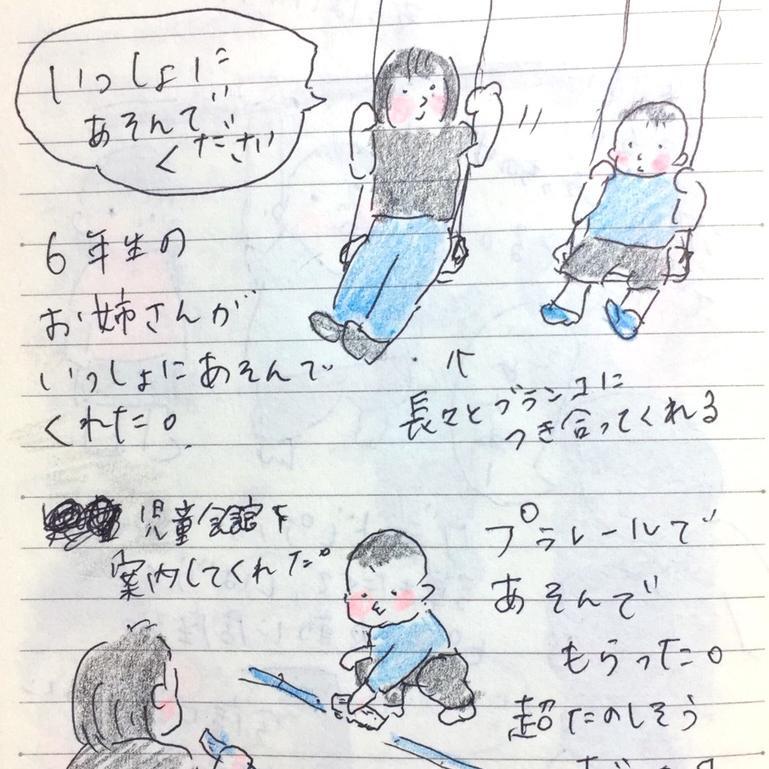 いっしょに
あそんで
ください
6年生の
お姉さんが
いっしょにあそんで
くれた。
長々とブランコに
つき合ってくれる
児童会館を
案内してくれた。
プラレールで
あそんで
もらった。
超たのしそう